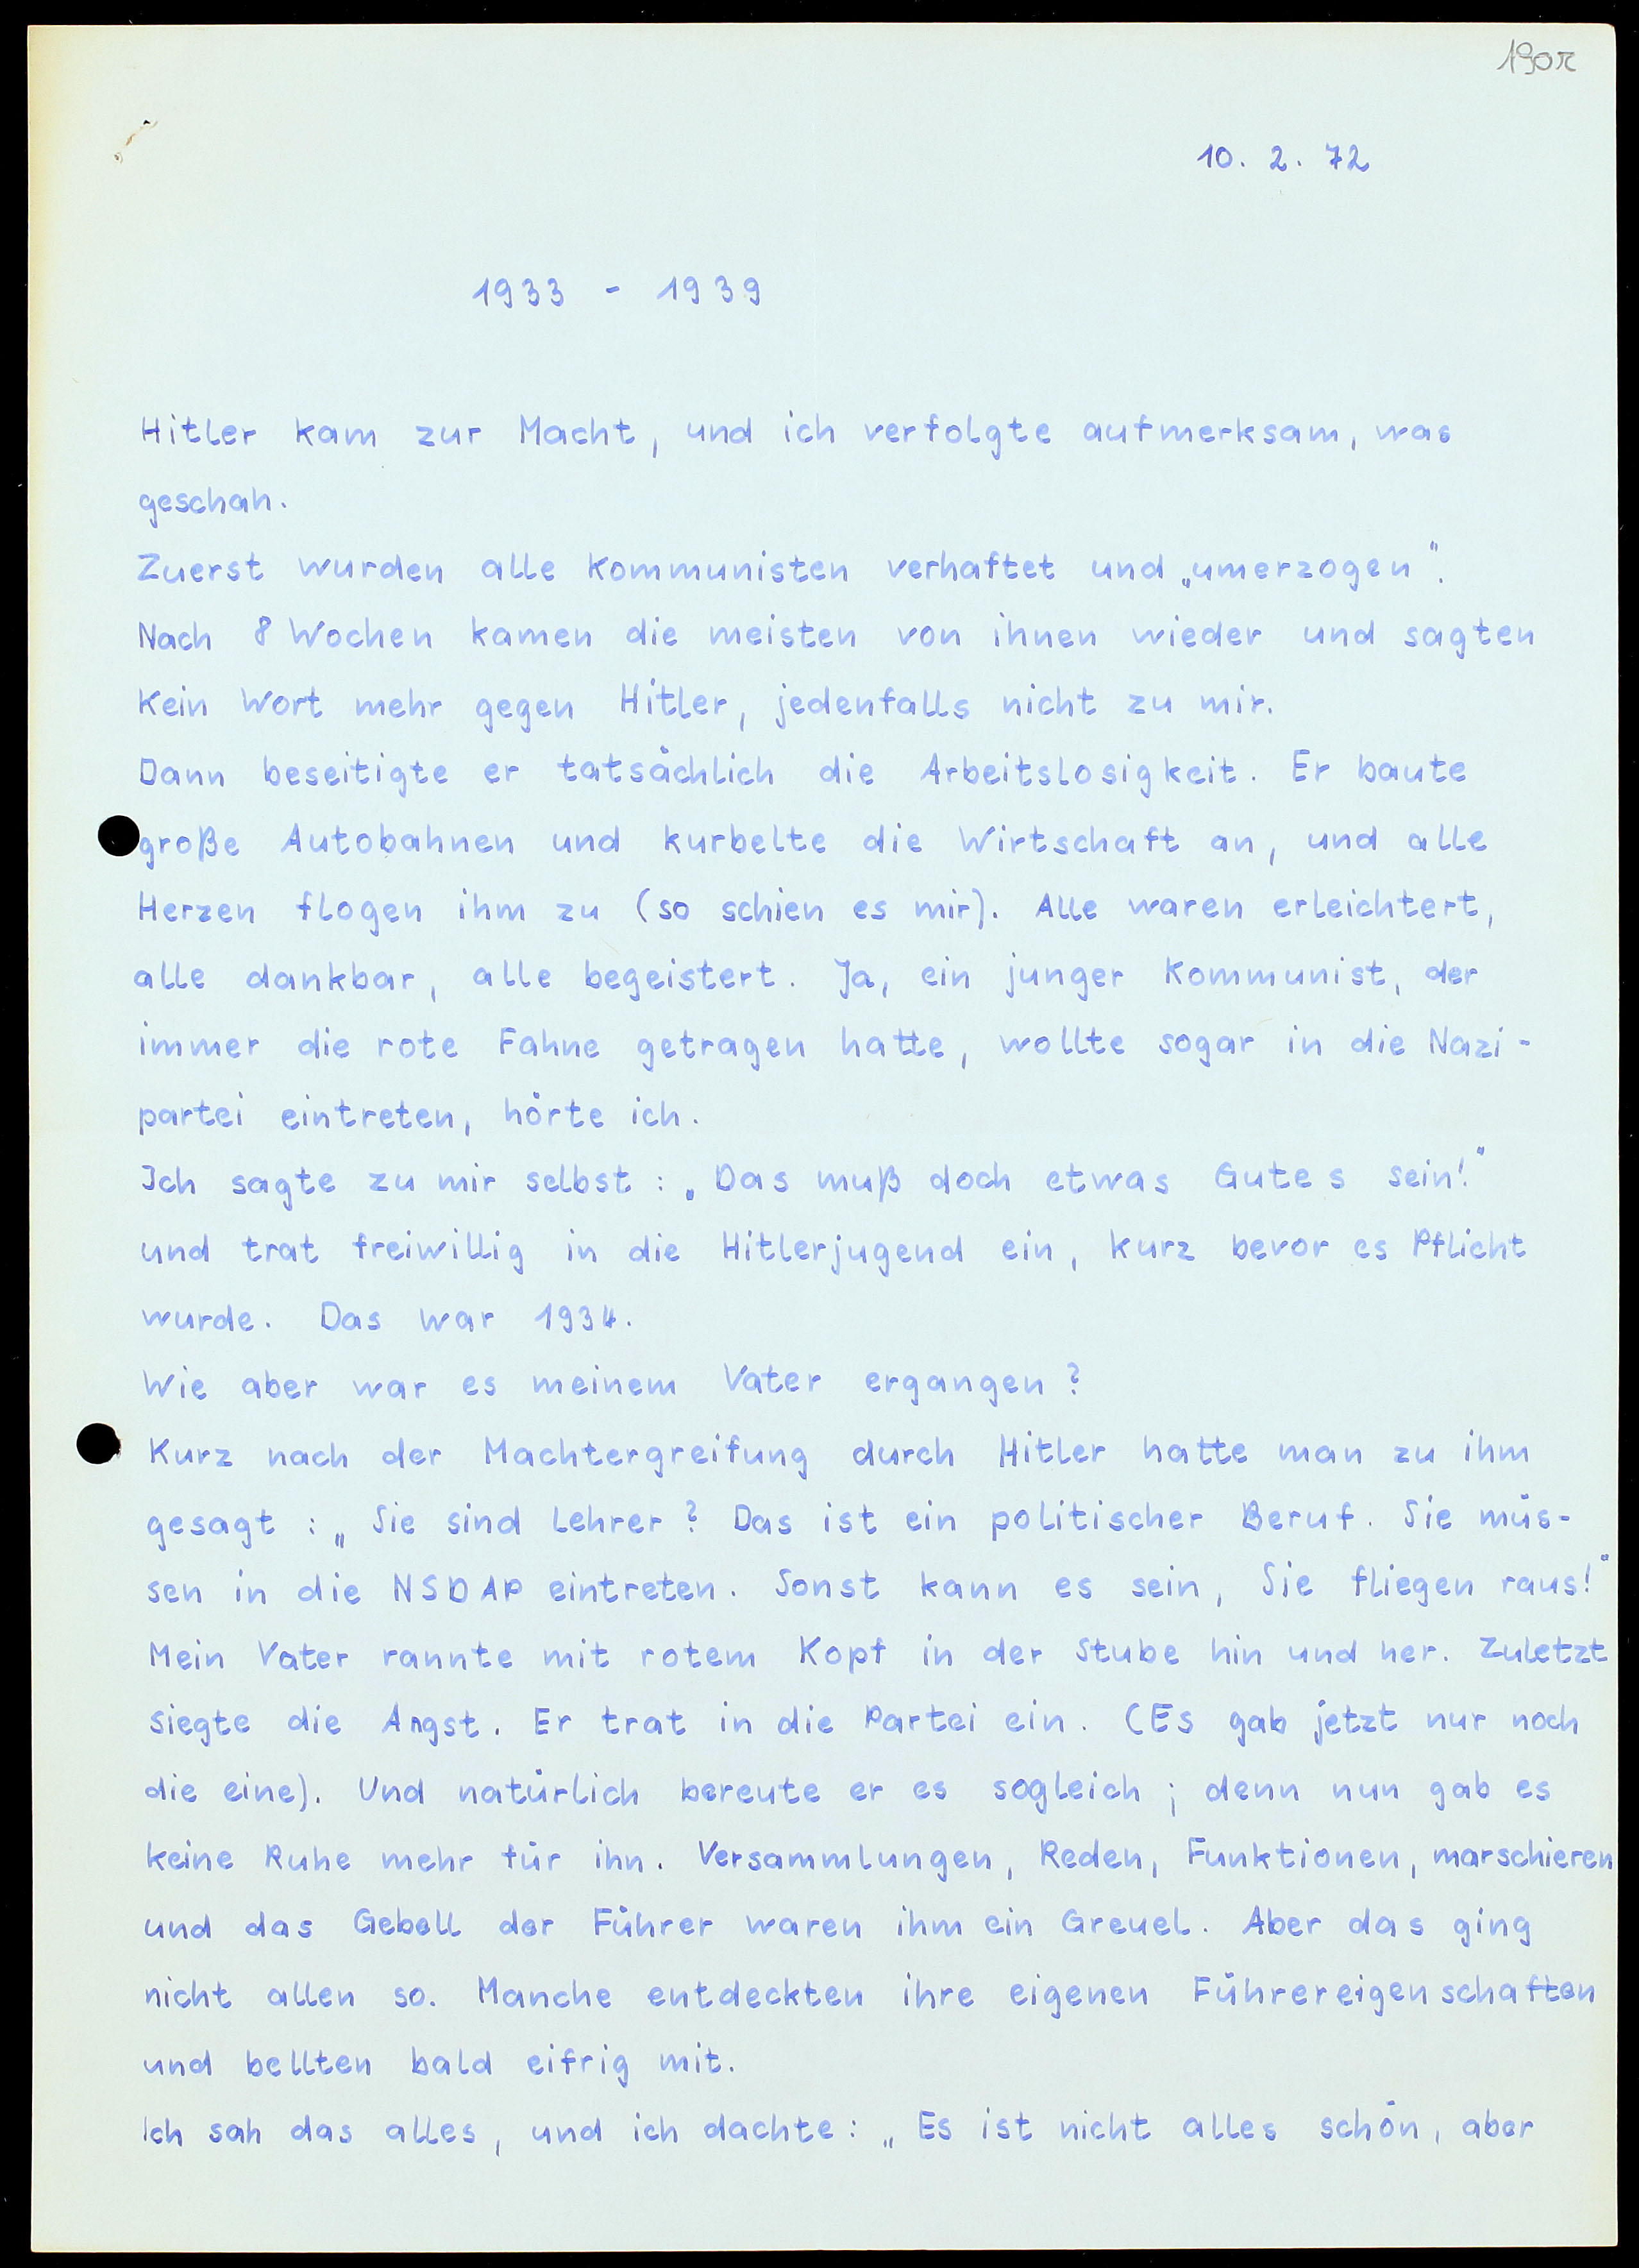 190r
10. 2. 72
1933 - 1939
Hitler kam zur Macht, und ich verfolgte aufmerksam, was
geschah.
Zuerst wurden alle Kommunisten verhaftet und „umerzogen".
Nach 8 Wochen kamen die meisten von ihnen wieder und sagten
kein Wort mehr gegen Hitler, jedenfalls nicht zu mir.
Dann beseitigte er tatsächlich die Arbeitslosigkeit. Er baute
große Autobahnen und kurbelte die Wirtschaft an, und alle
Herzen flogen ihm zu (so schien es mir). Alle waren erleichtert,
alle dankbar, alle begeistert. Ja, ein junger Kommunist, der
immer die rote Fahne getragen hatte, wollte sogar in die Nazi-
partei eintreten, hörte ich.
Ich sagte zu mir selbst: „Das muß doch etwas Gutes sein!"
und trat freiwillig in die Hitlerjugend ein, kurz bevor es Pflicht
wurde. Das war 1934.
Wie aber war es meinem Vater ergangen?
Kurz nach der Machtergreifung durch Hitler hatte man zu ihm
gesagt: „Sie sind Lehrer? Das ist ein politischer Beruf. Sie müs-
sen in die NSDAP eintreten. Sonst kann es sein, Sie fliegen raus!"
Mein Vater rannte mit rotem Kopf in der Stube hin und her. Zuletzt
siegte die Angst. Er trat in die Partei ein. (Es gab jetzt nur noch
die eine). Und natürlich bereute er es sogleich; denn nun gab es
keine Ruhe mehr für ihn. Versammlungen, Reden, Funktionen, marschieren
und das Gebell der Führer waren ihm ein Greuel. Aber das ging
nicht allen so. Manche entdeckten ihre eigenen Führereigenschaften
und bellten bald eifrig mit.
Ich sah das alles, und ich dachte: „Es ist nicht alles schön, aber